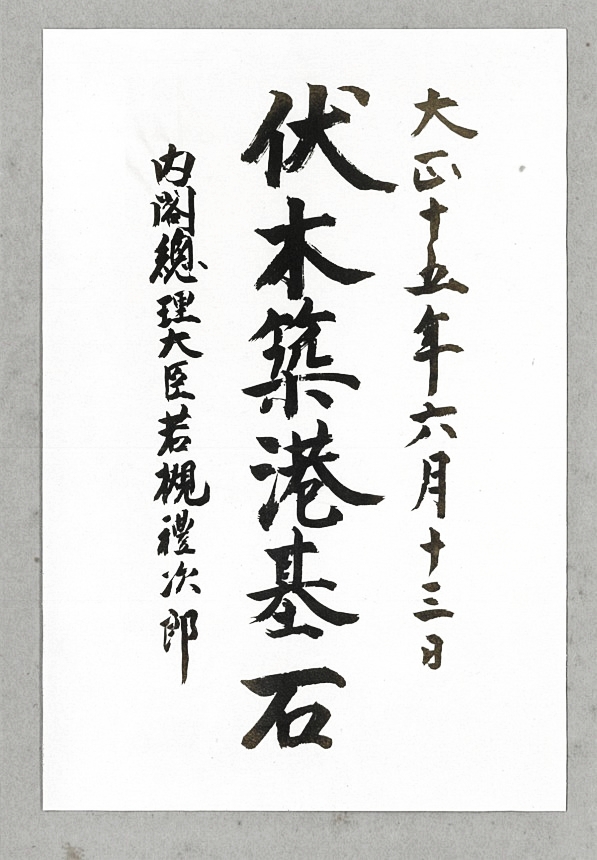 大正十五年六月十三日
伏木築港基石
内閣總理大臣若槻禮次郎